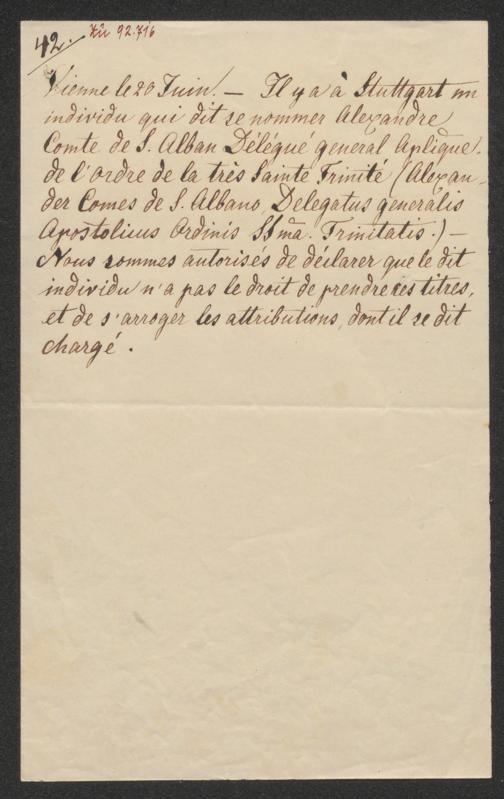 42.
92.716
Vienne le 20 Juin. — Il y a à Stuttgart un
individu qui dit se nommer Alexandre
Comte de S. Alban Délégué general Aplique
de l'ordre de la très Sainte Trinité (Alexan-
der Comes de S. Albano, Delegatus generalis
Apostolicus Ordinis SSma. Trinitatis.) —
Nous sommes autorisés de déclarer que le dit
individu n'a pas le droit de prendre ces titres,
et de s'arroger les attributions, dont il se dit
chargé.